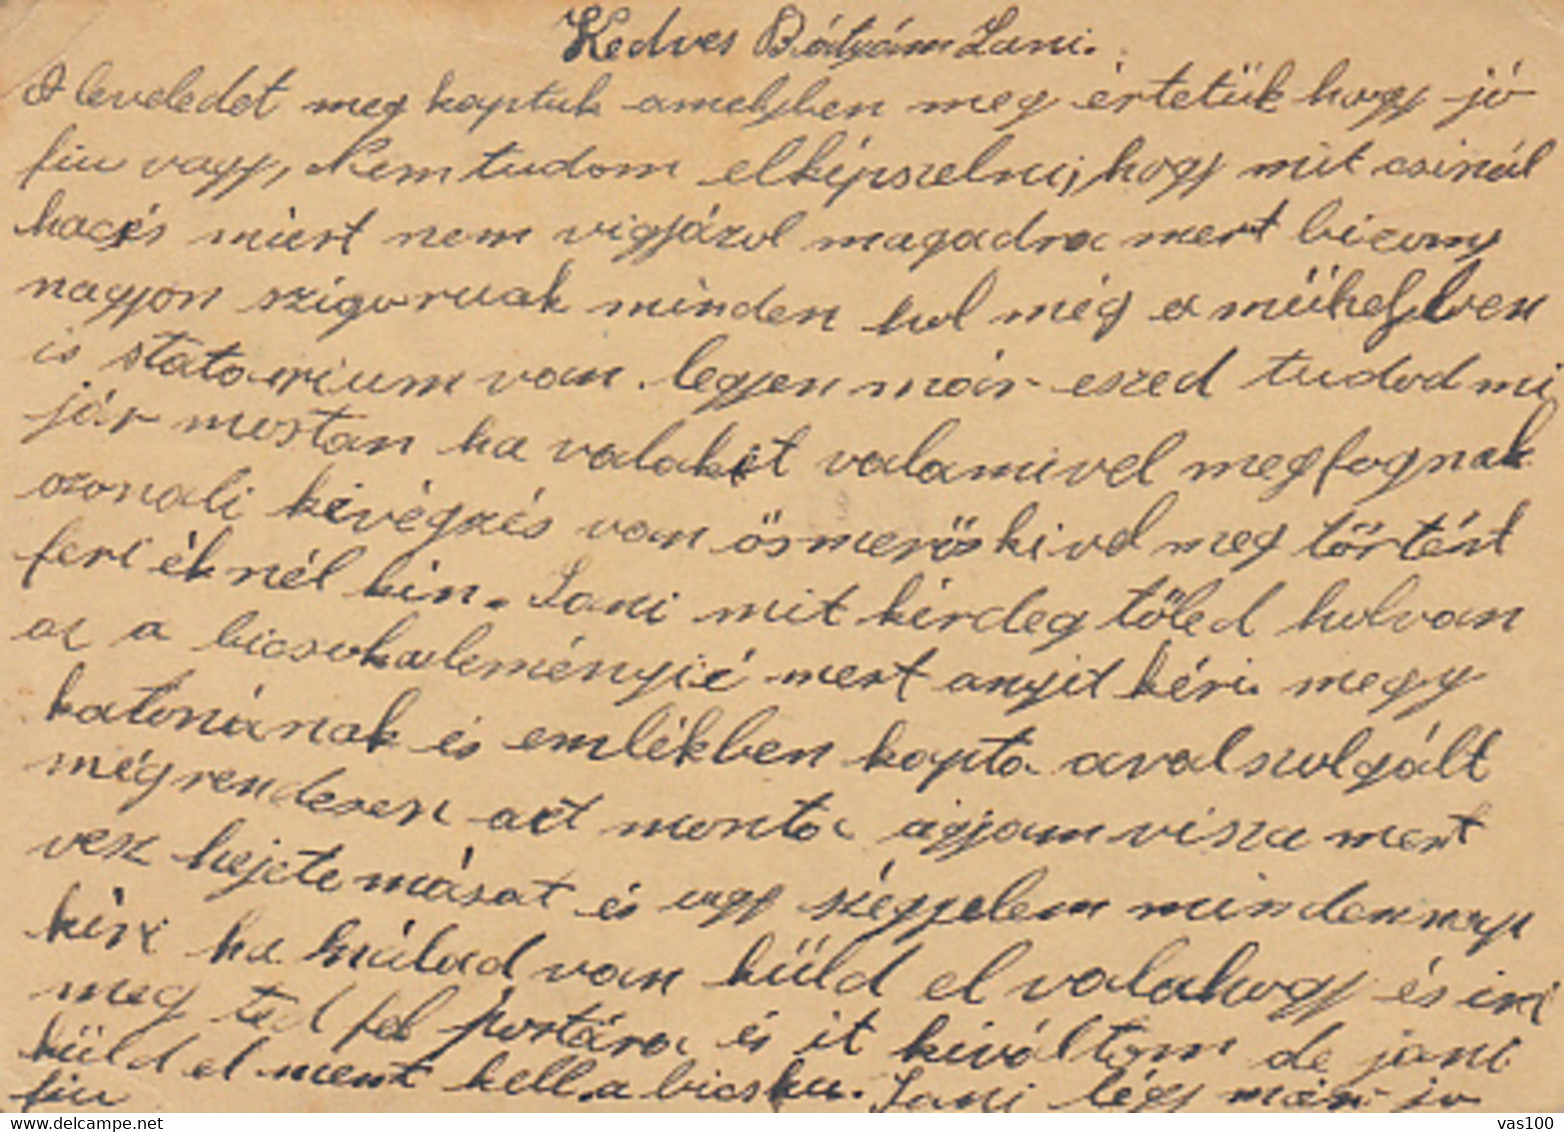 Kedves Bátyám Jani.
A leveledet meg kaptuk amelyben meg értetük hogy jó
fiu vagy, Nem tudom elképszelni, hogy mit csinál
hacés miért nem vigjázol magadra mert bizony
nagyon szigoruak minden hol még a mühelyben
is statarium van. legyen már eszed tudod mi
jár mostan ha valakit valamivel megfognak
ozonali kivégzés van ösmerös kivel meg történt
feri ék nél kin. Jani mit kérdeg töled hol van
az a bicska mert anyit kéri megy
katonának és emlékben kapta aval szolgált
még rendesen azt monta agjam visza mert
vesz hejete másat és ugy szégyelem minden nap
kéri ha nálad van küld el valahogy és ird
meg ted fel postára és it kiváltom de jani
küld el mert kell a bicska. Jani légy már jo
fiu
vas100